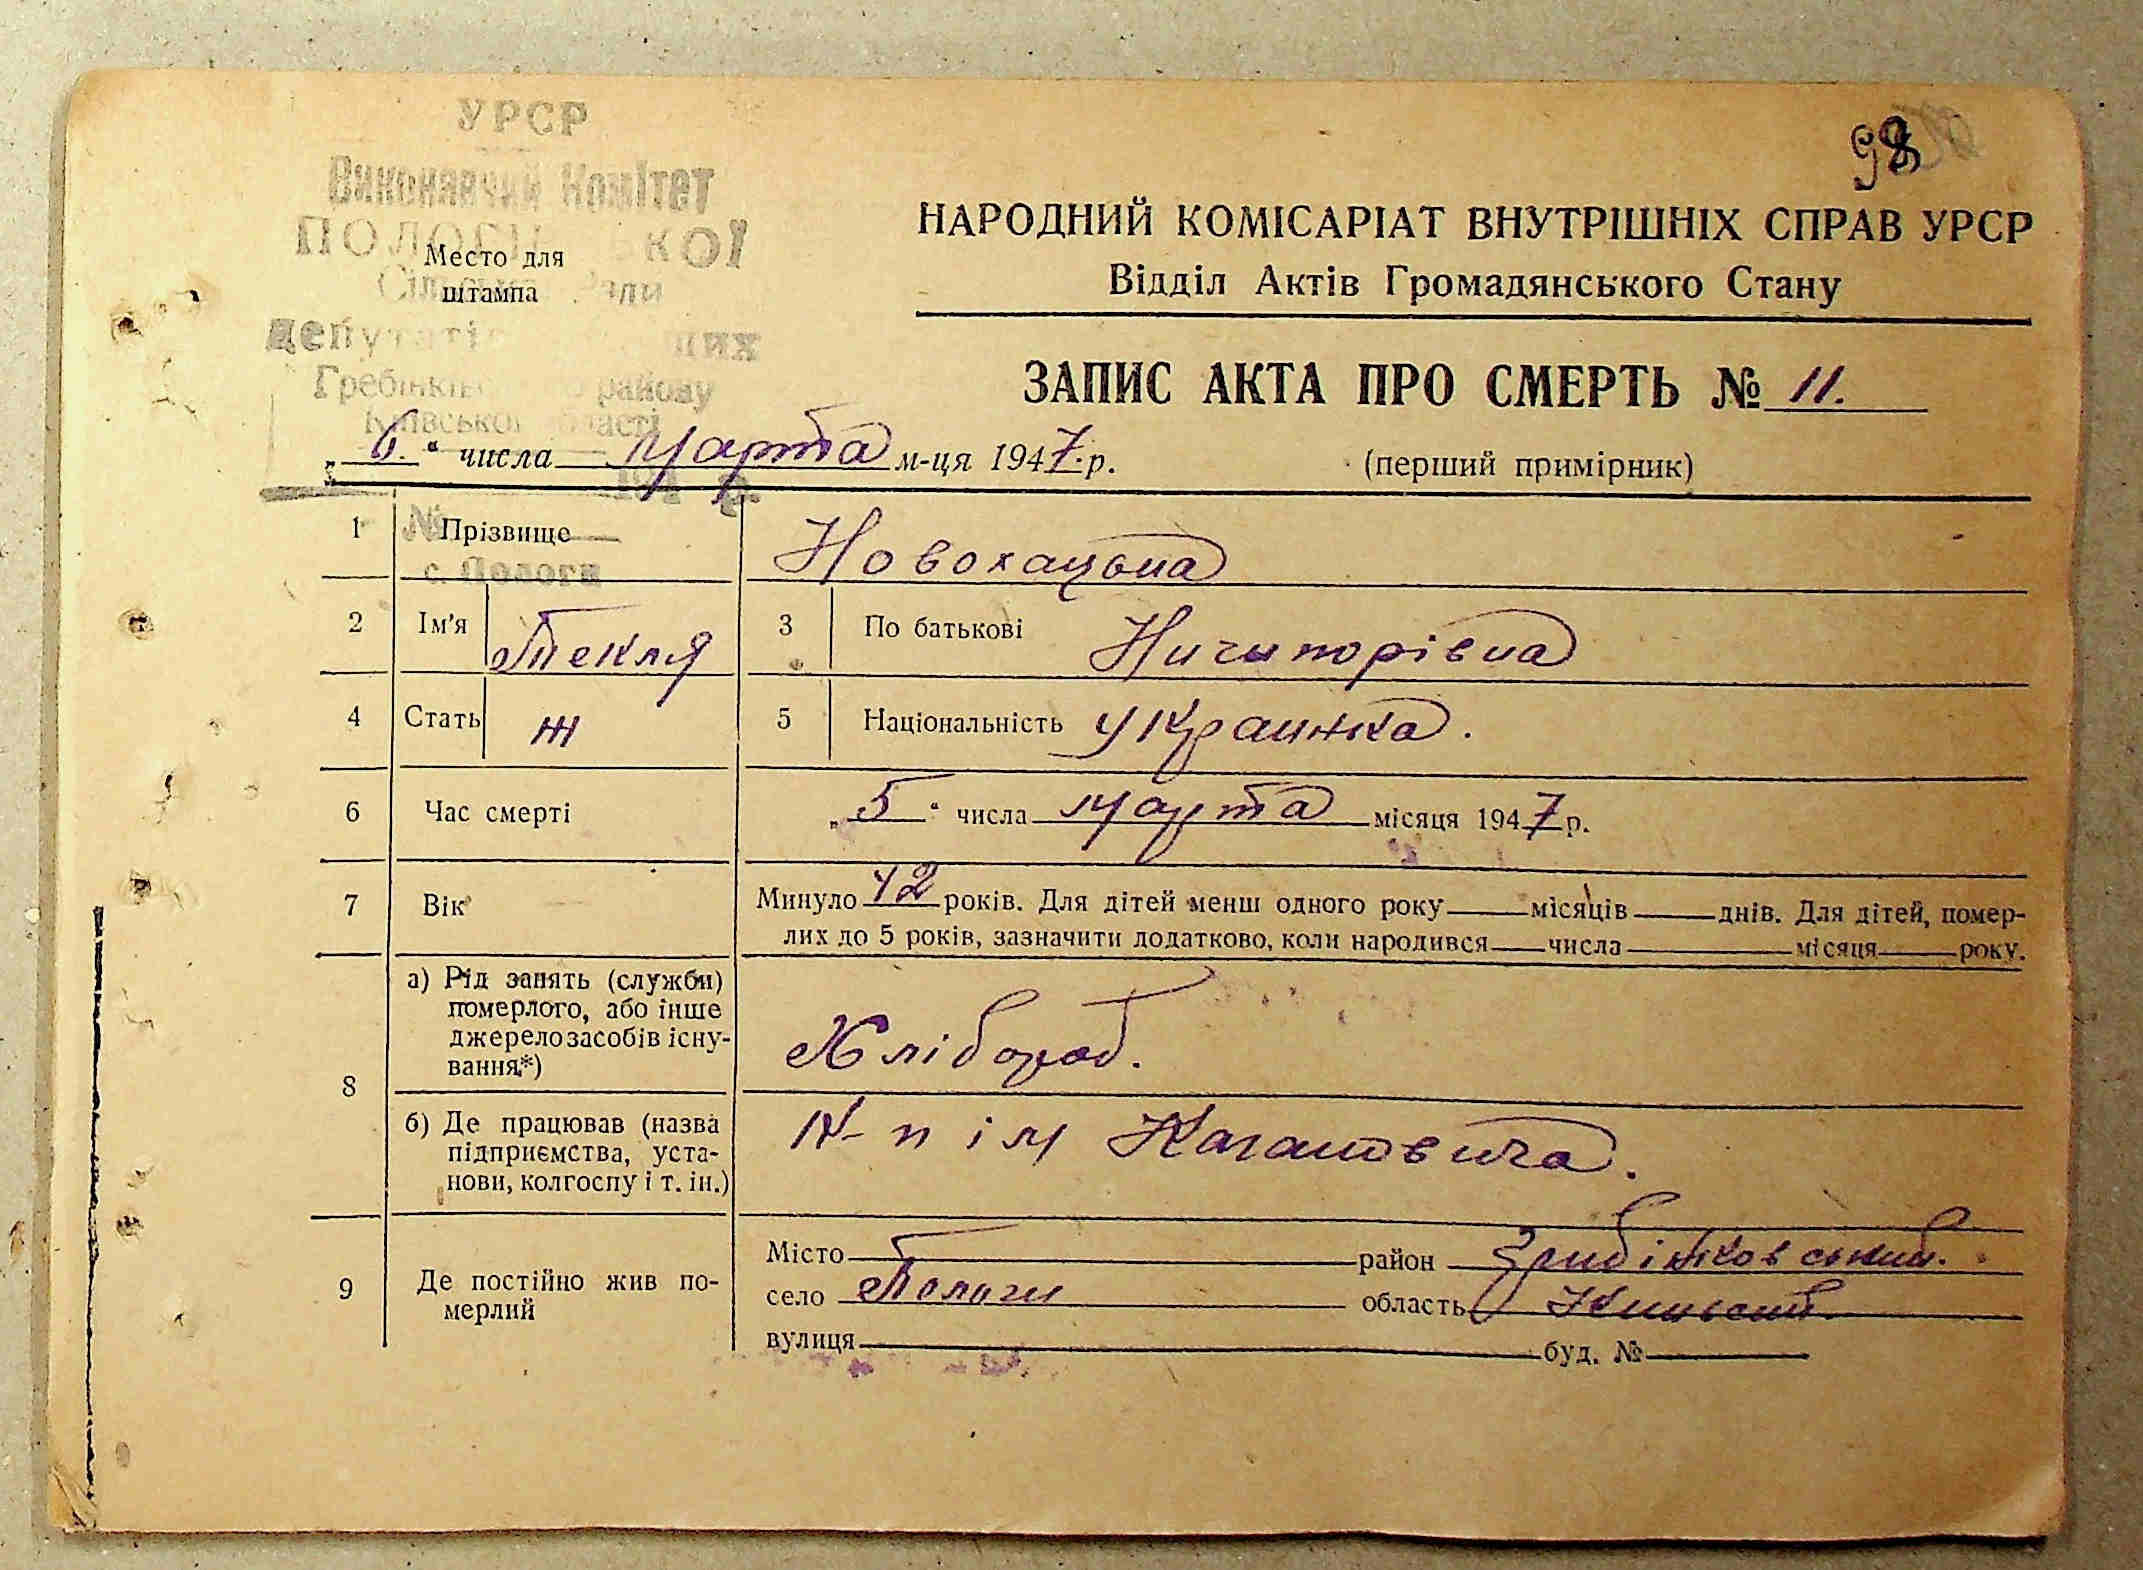 УРСР
Виконавчий Комітет
ПОЛОГІ КОЇ
Місто для
штампа
Сільської Ради
Депутатів щих
Гребінків району
Київської області
194 р.
№
с. Пологи
98
НАРОДНИЙ КОМІСАРІАТ ВНУТРІШНІХ СПРАВ УРСР
Відділ Актів Громадянського Стану
ЗАПИС АКТА ПРО СМЕРТЬ № 11.
„6." числа марта м-ця 1947 р. (перший примірник)
1 Прізвище Новохацька
2 Ім'я Текля 3 По батькові Ничипорівна
4 Стать ж 5 Національність украинка.
6 Час смерті „5" числа марта місяця 1947 р.
7 Вік Минуло 42 років. Для дітей менш одного року місяців днів. Для дітей, помер-
лих до 5 років, зазначити додатково, коли народився числа місяця року.
8 а) Рід занять (служби)
померлого, або інше
джерело засобів існу-
вання*) Хлібороб.
б) Де працював (назва
підприємства, уста-
нови, колгоспу і т. ін.) К-п ім Кагановича.
9 Де постійно жив по-
мерлий
Місто район Гребінковський.
село Пологи область Киівский
вулиця буд. №